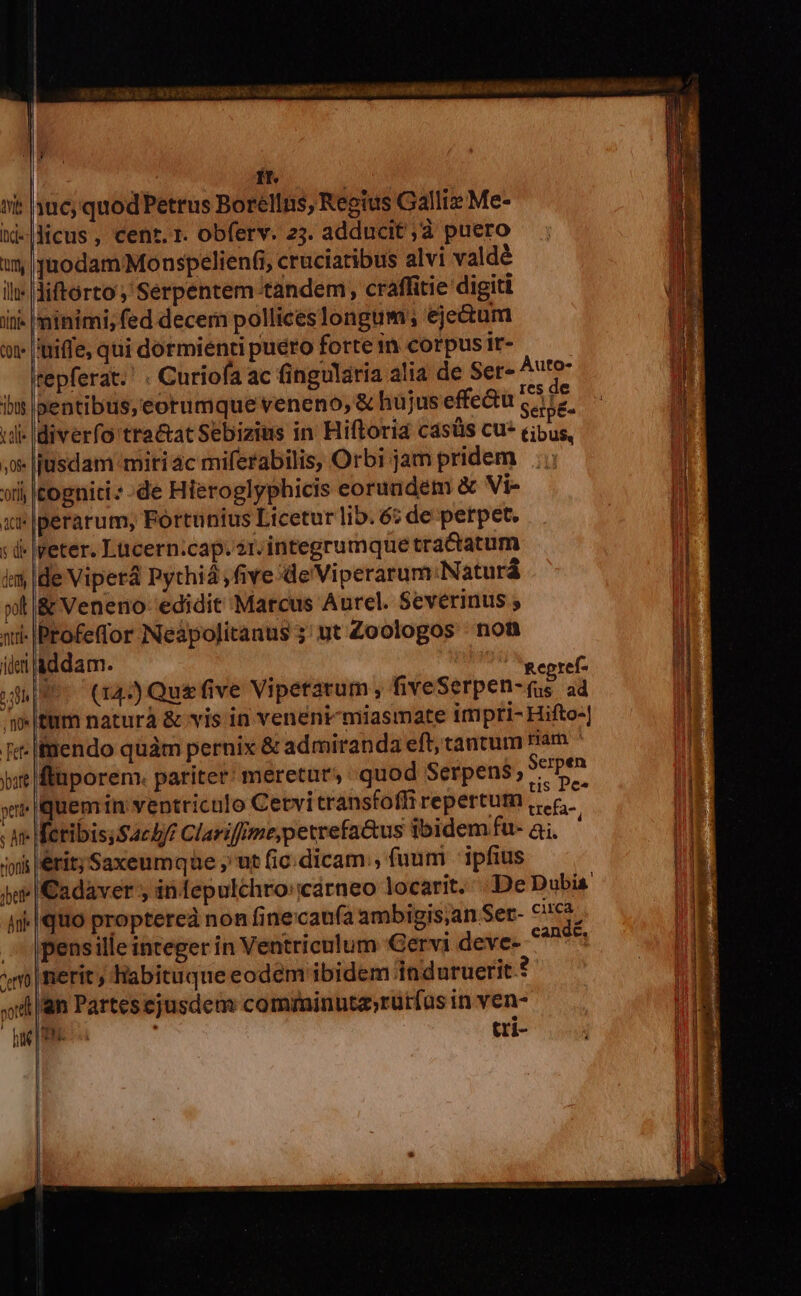 11.
huc, quod Petrus Borellus, Regius Galliæ Me-
dicus, cent. 1. obſerv. 23. adducit, à puero
quodam Monspelienſi, cruciatibus alvi valdè
diſtorto, Serpentem tandem, craſſitie digiti
minimi, ſed decem pollices longum, ejectum
fuiſſe, qui dormienti puero forte in corpus ir-
repſerat. Curioſa ac ſingularia alia de Ser-
pentibus, eorumque veneno, & hujus effectu
diverſo tractat Sebizius in Hiſtoriâ casûs cu-
jusdam miri ac miſerabilis, Orbi jam pridem
cogniti: de Hieroglyphicis eorundem & Vi-
perarum, Fortunius Licetur lib. 6: de perpet.
veter. Lucern. cap. 21. integrumque tractatum
de Viperâ Pythiâ, ſive de Viperarum Naturâ
& Veneno edidit Marcus Aurel. Severinus,
Profeſſor Neapolitanus; ut Zoologos non
addam.
Autores de Serpentibus,
(14.) Quæ ſive Viperarum, ſive Serpen-
tum naturâ & vis in veneni miasmate impri-
mendo quàm pernix & admiranda eſt, tantum
ſtuporem pariter meretur, quod Serpens,
quem in ventriculo Cervi transfoſſi repertum
ſcribis, Sachſi Clariſſime, petrefactus ibidem fu-
erit, Saxeumque, ut ſic dicam, ſuum ipſius
Cadaver, in ſepulchro carneo locarit. De
quo proptereà non ſine cauſa ambigis, an Ser-
pens ille integer in Ventriculum Cervi deve-
nerit, habituque eodem ibidem induruerit?
an Partes ejusdem comminutæ, rurſus in ven-
Repreſ-
ſus ad
Hiſto-
riam
Serpen
tis Pe-
trefa-
cti.
Dubia
circa
eandē,
tri-